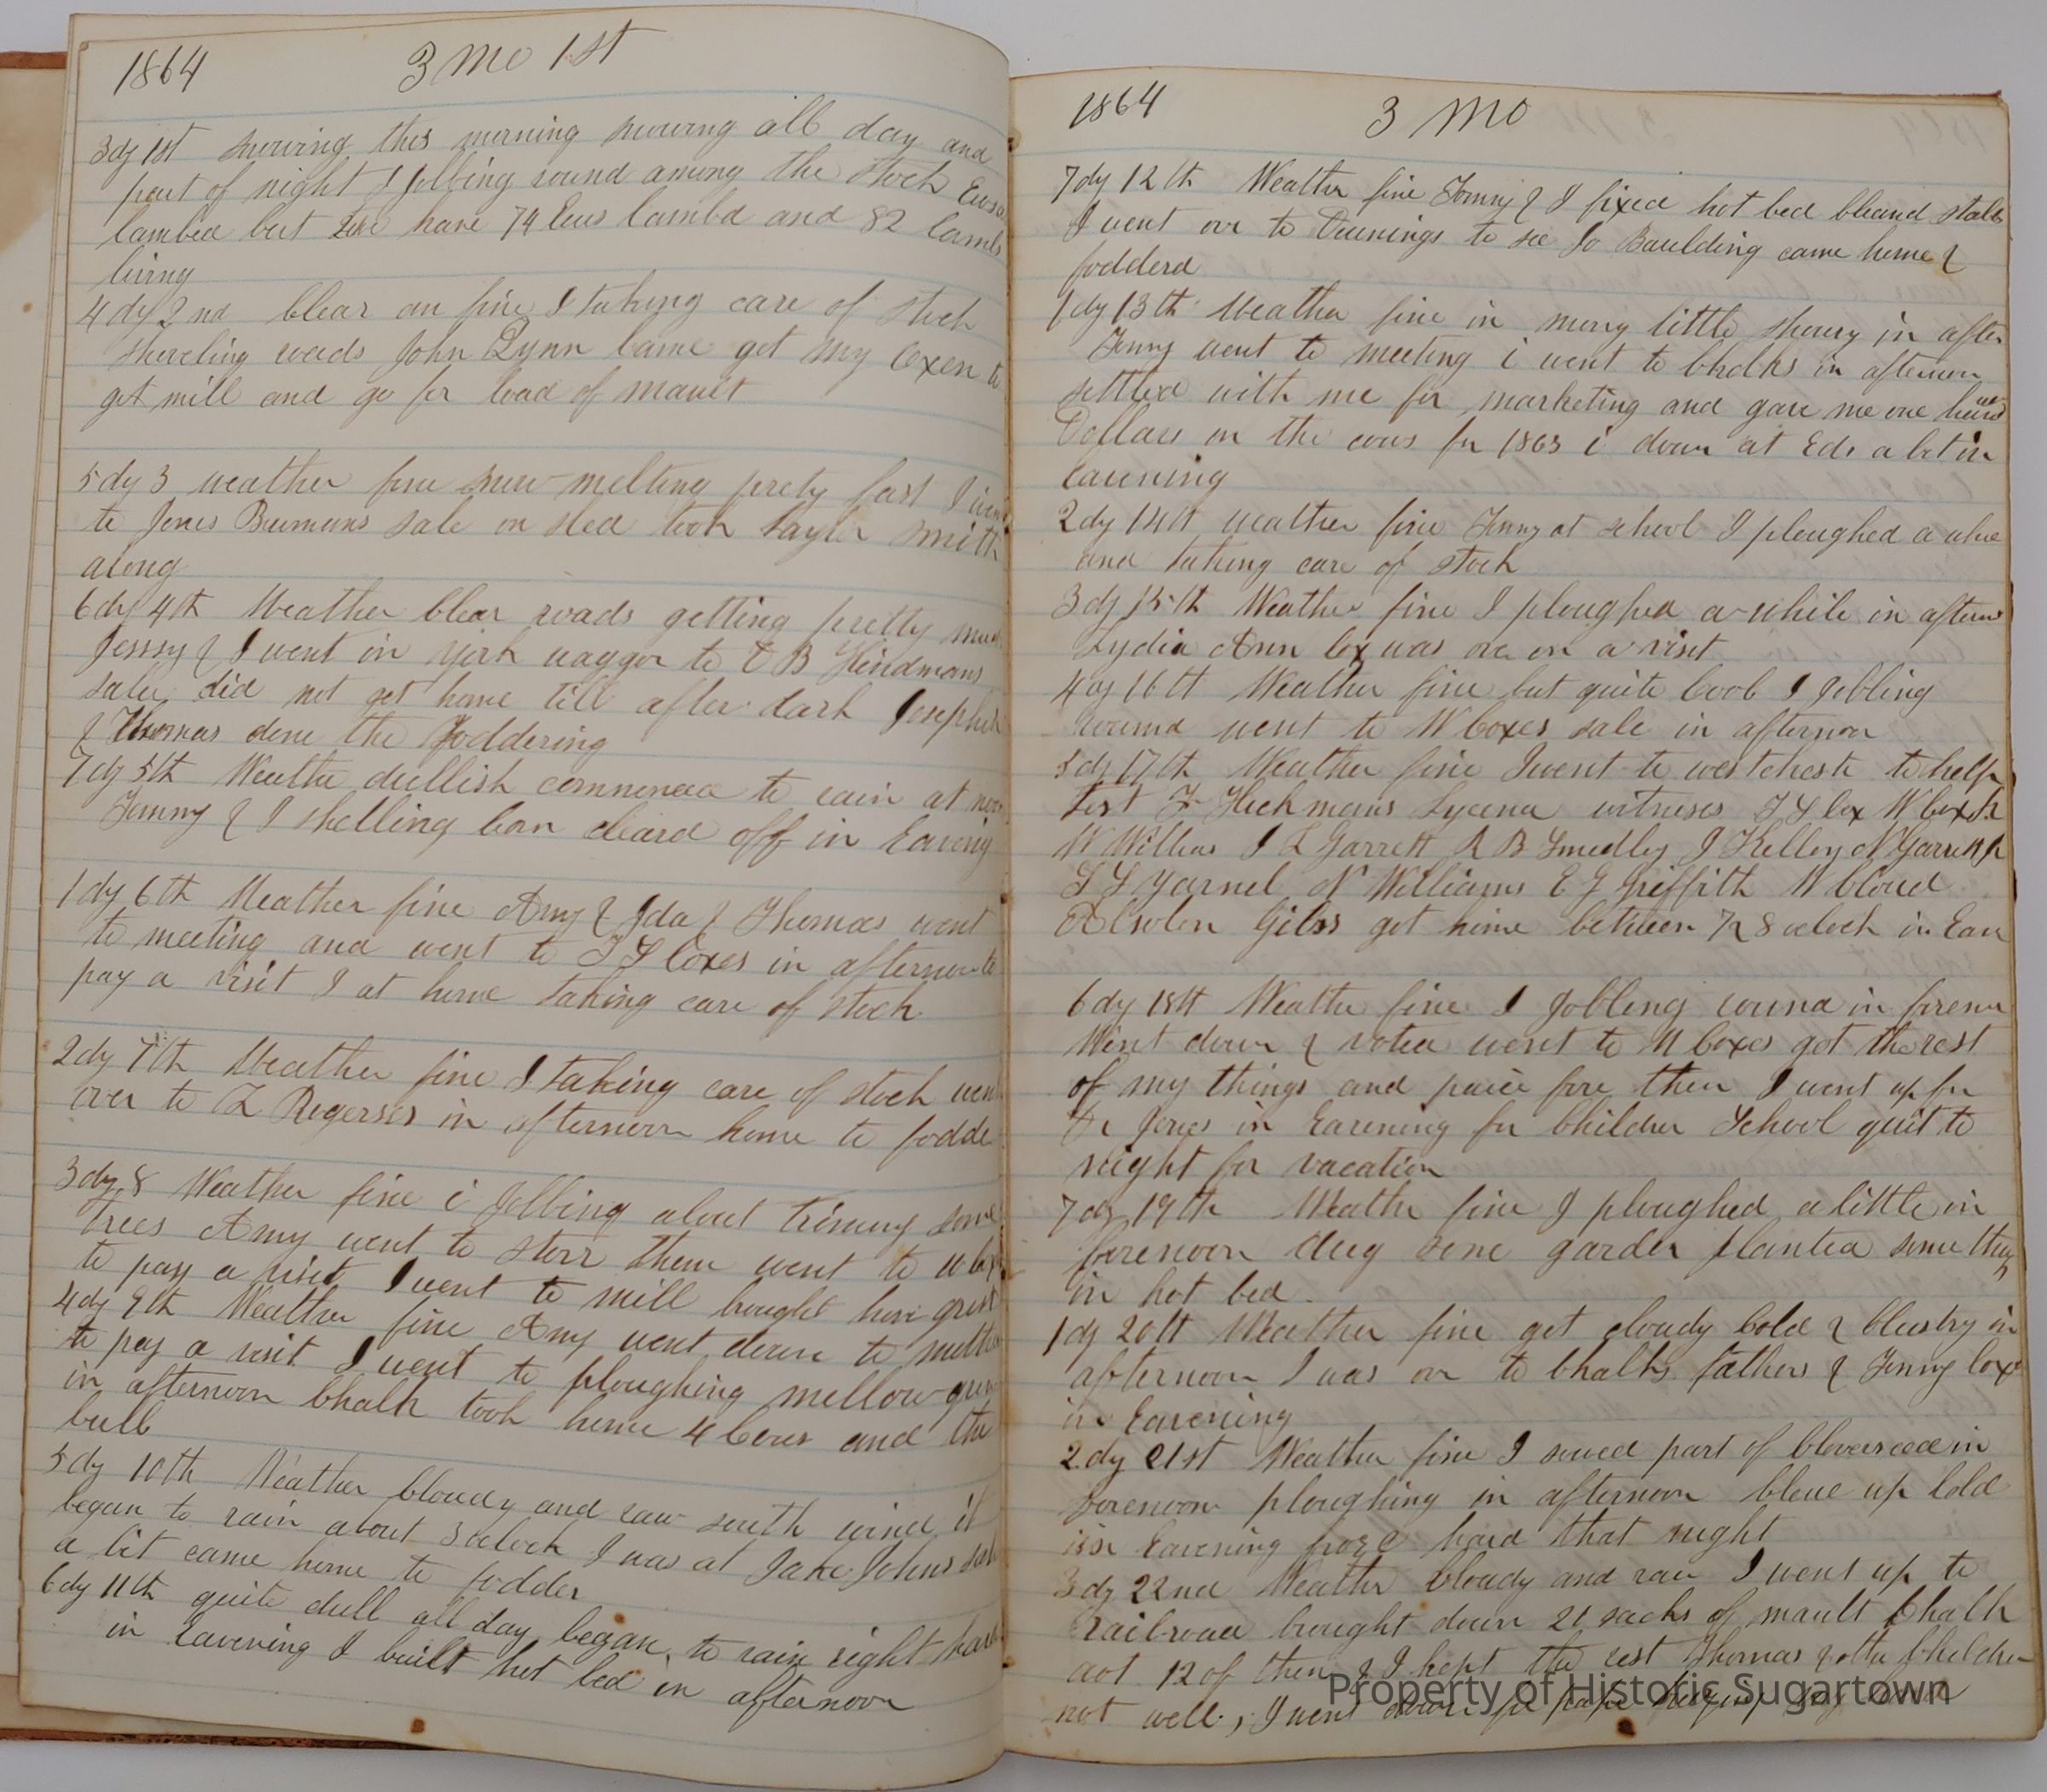 1864 3 Mo 1st
3dy 1st snowing this morning snowing all day and
part of night I Jobbing round among the stock Ewes
lambed but 2 we have 74 Ews lambd and 82 lambs
living
4 dy 2nd Clear an fine I taking care of stock
shoveling roads John Lynn Came got my Oxen to
got mill and go for load of mault
5 dy 3 weather fine snow melting prety fast I went
to Jones Bumans sale on sled took Taylor Smith
along
6 dy 4th Weather Clear roads getting pretty mud
Jesssy & I went in York waggon to T B Hindmans
sale did not get home till after dark Josephus
& Thomas done the Foddering
7 dy 5th Weather dullish commenced to rain at noon
Tommy & I shelling Corn cleard off in Eavnig
1 dy 6th Weather fine Amy & Ida & Thomas went
to meeting and went to T S Coxes in afternoon to
pay a visit I at home taking care of stock
2dy 7th Weather fine I taking care of stock went
over to L Rogerses in afternoon home to fodder
3 dy 8 Weather fine i Jobbing about triming some
trees Amy went to storr then went to W Cox
to pay a visit I went to mill brought hom grist
4 dy 9th Weather fine Amy went down to
to pay a visit I went to ploughing mellow
in afternoon Chalk took home 4 Cows and the
bull
5 dy 10th Weather Cloudy and raw south wind it
began to rain about 3 oclock I was at Jake Johns sale
a bit came home to fodder
6 dy 11th quite dull all day began to rain right hard
in Eavening I built hot bed in afternoon
1864 3 Mo
7 dy 12th Weather fine Tommy & I fixed hot bed Cleand stable
I went ovr to Dunings to see Jo Baulding came home &
fodderd
1 dy 13th Weather fine in morng little showry in after
Tommy went to meeting i went to Chalks in afternoon
settled with me for marketing and gave me one hund
Dollars on the cows for 1863 i down at Eds a bit in
Eavening
2 dy 14th weather fine Tommy at school I ploughed a while
and taking care of stock
3 dy 15th Weather fine I ploughed a while in afternoon
Lydia Ann Cox was ovr on a visit
4 dy 16th Weather fine but quite Cool I Jobbing
round went to W Coxes sale in afternoon
5 dy 17th Weather fine I went to westcheste to help
test F Hickmans Lycena witneses T S Cox W Cox Sr
W Wilkins I L Garrett A B Smedley J Kelley N Garrett Jr
S S Yarnel N Williams E G Griffith W Cloud
Absolon Gibss got home between 7 & 8 oclock in Eav
6 dy 18th Weather fine I Jobbing round in forenon
Went down & voted went to W Coxes got the rest
of my things and paid fore then I went up for
Dr Jones in Eavening for Children School quit to
night for vacation
7 dy 19th Weather fine I ploughed a little in
forenoon dug some garden planted some thing
in hot bed
1 dy 20th Weather fine got cloudy Cold & blustry in
afternoon I was ovr to Chalks fathers & Tommy Cox
in Eavening
2 dy 21st Weather fine I sowed part of Cloverseed in
forenoon ploughing in afternoon blew up Cold
in Eavening froze hard that night
3 dy 22nd Weather Cloudy and raw I went up to
Railroad brought down 21 sacks of mault Chalk
got 12 of them & I kept the rest Thomas & other Children
not well, I went down for
Property of Historic Sugartown